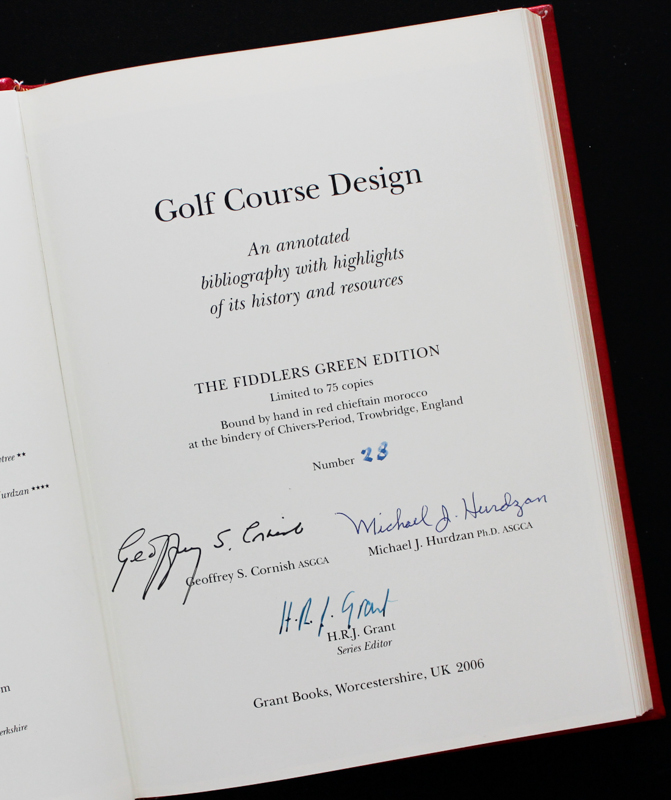 Golf Course Design
An annotated
bibliography with highlights
of its history and resources
THE FIDDLERS GREEN EDITION
Limited to 75 copies
Bound by hand in red chieftain morocco
at the bindery of Chivers-Period, Trowbridge, England
Number 28
Geoffrey S. Cornish
Geoffrey S. Cornish ASGCA
Michael J. Hurdzan
Michael J. Hurdzan Ph.D. ASGCA
H.R.J. Grant
H.R.J. Grant
Series Editor
Grant Books, Worcestershire, UK 2006